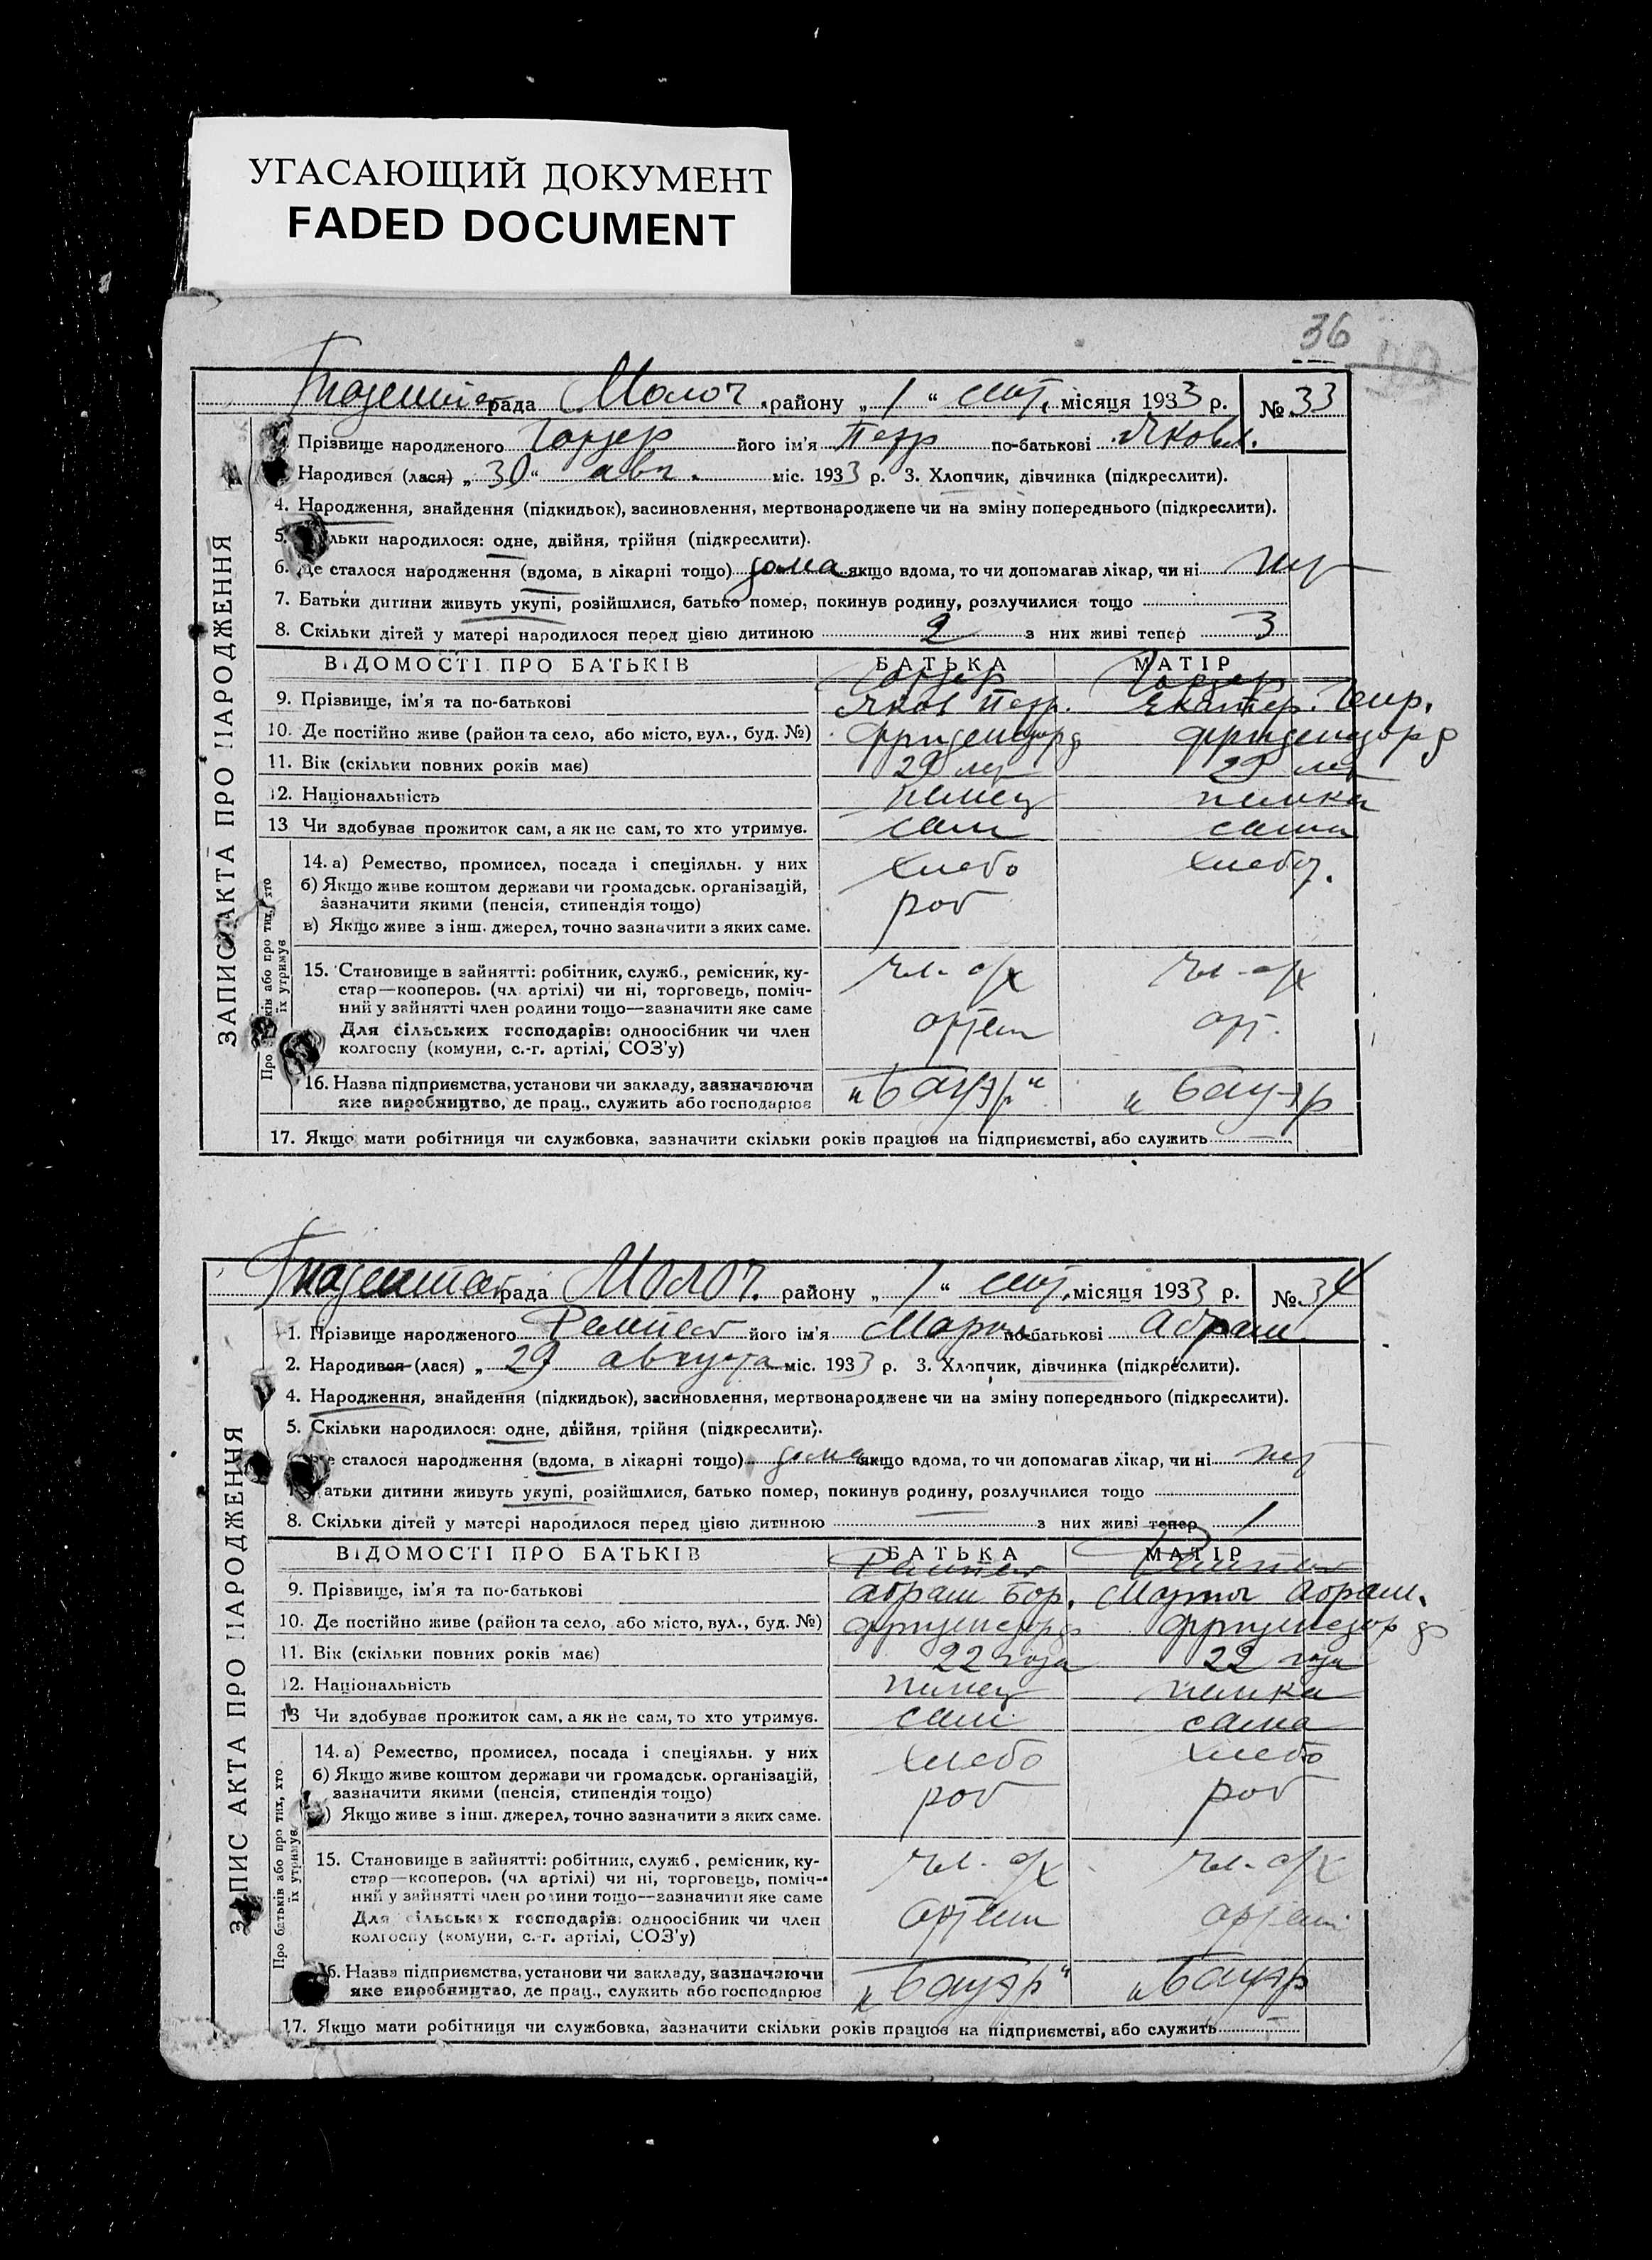 УГАСАЮЩИЙ ДОКУМЕНТ
FADED DOCUMENT
36
рада Молоч. району „ 1 “ сент. місяця 1933 р. № 33
Прізвище народженого його ім'я Петр по-батькові Яковл.
Народився (лася) „ 30 “ авг. міс. 1933 р. 3. Хлопчик, дівчинка (підкреслити).
4. Народження, знайдення (підкидьок), засиновлення, мертвонароджене чи на зміну попереднього (підкреслити).
5. льки народилося: одне, двійня, трійня (підкреслити).
6. Де сталося народження (вдома, в лікарні тощо) дома якщо вдома, то чи допомагав лікар, чи ні нет
7. Батьки дитини живуть укупі, розійшлися, батько помер, покинув родину, розлучилися тощо
8. Скільки дітей у матері народилося перед цією дитиною 2 з них живі тепер 3
ВІДОМОСТІ ПРО БАТЬКІВ БАТЬКА МАТІР
9. Прізвище, ім'я та по-батькові Яков Петр. Екатер. Генр.
10. Де постійно живе (район та село, або місто, вул., буд. №) Фриденсдорф Фриденсдорф
11. Вік (скільки повних років має) 29 лет 29 лет
12. Національність немец немка
13 Чи здобуває прожиток сам, а як не сам, то хто утримує. сам сама
14. а) Ремество, промисел, посада і спеціяльн. у них хлебо хлебор.
б) Якщо живе коштом держави чи громадськ. організацій,
зазначити якими (пенсія, стипендія тощо) роб
в) Якщо живе з інш. джерел, точно зазначити з яких саме.
15. Становище в зайнятті: робітник, служб., ремісник, ку- Чл. с/х Чл. с/х
стар—кооперов. (чл. артілі) чи ні, торговець, поміч-
ний у зайнятті член родини тощо—зазначити яке саме
Для сільських господарів: одноосібник чи член артели арт.
колгоспу (комуни, с.-г. артілі, СОЗ'у)
16. Назва підприємства, установи чи закладу, зазначаючи „Бауэр“ „Бауэр
яке виробництво, де прац., служить або господарює
17. Якщо мати робітниця чи службовка, зазначити скільки років працює на підприємстві, або служить
ЗАПИС АКТА ПРО НАРОДЖЕННЯ
їх утримує
рада Молоч. району „ 1 “ сент. місяця 1933 р. № 34
1. Прізвище народженого його ім'я по-батькові Абрам.
2. Народився (лася) „ 29 августа міс. 1933 р. 3. Хлопчик, дівчинка (підкреслити).
4. Народження, знайдення (підкидьок), засиновлення, мертвонароджене чи на зміну попереднього (підкреслити).
5. Скільки народилося: одне, двійня, трійня (підкреслити).
сталося народження (вдома, в лікарні тощо) дома якщо вдома, то чи допомагав лікар, чи ні нет
атьки дитини живуть укупі, розійшлися, батько помер, покинув родину, розлучилися тощо
8. Скільки дітей у матері народилося перед цією дитиною з них живі тепер 1
ВІДОМОСТІ ПРО БАТЬКІВ БАТЬКА МАТІР
9. Прізвище, ім'я та по-батькові Абрам Бор. Марта Абрам.
10. Де постійно живе (район та село, або місто, вул., буд. №) Фриденсдорф Фриденсдорф
11. Вік (скільки повних років має) 22 года 22 года
12. Національність немец немка
13 Чи здобуває прожиток сам, а як не сам, то хто утримує. сам сама
14. а) Ремество, промисел, посада і спеціяльн. у них хлебо хлебо
б) Якщо живе коштом держави чи громадськ. організацій,
зазначити якими (пенсія, стипендія тощо) роб роб
) Якщо живе з інш. джерел, точно зазначити з яких саме.
15. Становище в зайнятті: робітник, служб., ремісник, ку- Чл. с/х Чл. с/х
стар—кооперов. (чл. артілі) чи ні, торговець, поміч-
ний у зайнятті член родини тощо—зазначити яке саме
Для сільських господарів: одноосібник чи член артели артели
колгоспу (комуни, с.-г. артілі, СОЗ'у)
16. Назва підприємства, установи чи закладу, зазначаючи „Бауэр“ „Бауэр
яке виробництво, де прац., служить або господарює
17. Якщо мати робітниця чи службовка, зазначити скільки років працює на підприємстві, або служить
ЗАПИС АКТА ПРО НАРОДЖЕННЯ
Про батьків або про тих, хто
їх утримує